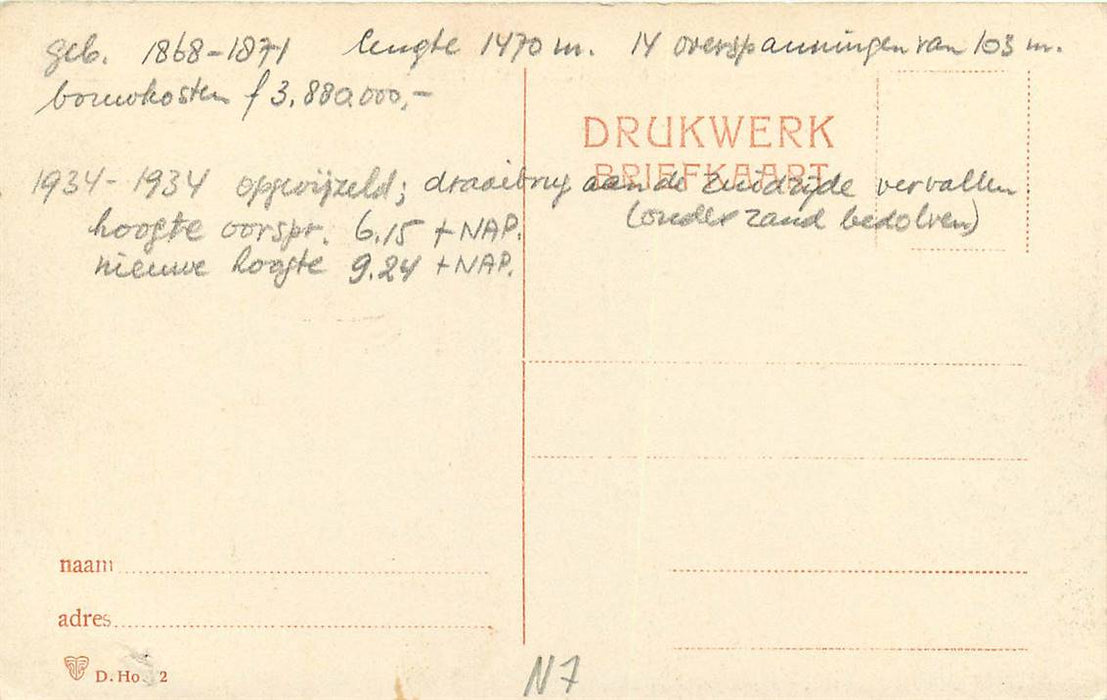 geb. 1868-1871 lengte 1470 m. 14 overspanningen van 103 m.
bouwkosten f 3.880.000,-
DRUKWERK
BRIEFKAART
1934-1934 opgevijzeld; draaibrug aan de Zuidzijde vervallen
hoogte oorspr. 6.15 + NAP. (onder zand bedolven)
nieuwe hoogte 9.24 + NAP.
naam
adres
D. Ho 2
N7